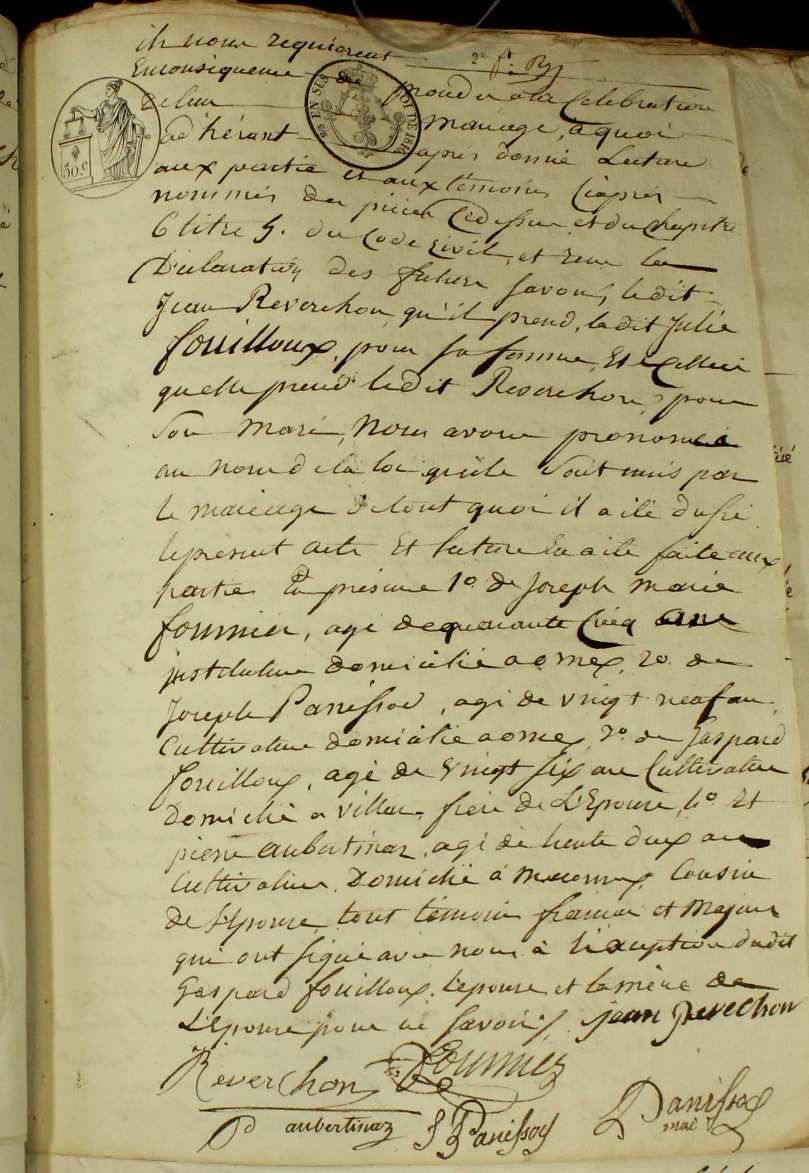 ils nous requierent
2e ft
En consequence de proceder a la Celebration
de leur mariage, a quoi
adhérant après donné Lecture
aux partie et aux témoins Ciaprés
nommés des pièces Cidessus et du chapitre
6 titre 5. du Code Civil, et reçu la
Déclaration des futurs savoir, ledit
Jean Reverchon qu'il prend, ladit Julie
fouilloux, pour sa femme, Et Celleci
quelle prend ledit Reverchon, pour
Son mari, Nous avons prononcé
au nom de la loi qu'ils Sont unis par
le mariage de tout quoi il a été dressé
le présent acte Et lecture En a été faite aux
partie En présence 1o de Joseph Marie
fournier, agé de quarante Cinq ans
instituteur domicilié a omex, 2o. de
Joseph Panissod, agé de vingt neuf an
Cultivateur domicilié a omex 3o. de Gaspard
fouilloux, agé de vingt six ans Cultivateur
Domicilié a villar, frère de L'Epouse, 4o Et
pierre aubertinaz, agé de trente deux ans
Cultivateur, Domicilié à Cousin
de L'épouse, tout témoins francais et Majeur
qui ont signé avec nous à l'exception dudit
Gaspard fouilloux, l'epouse et la mère de
L'Epouse pour ne savoir jean Reverchon
Reverchon Fournier
P aubertinaz J Panissod Panissod
mai
30 C
EN SUS
LOI DE 1816